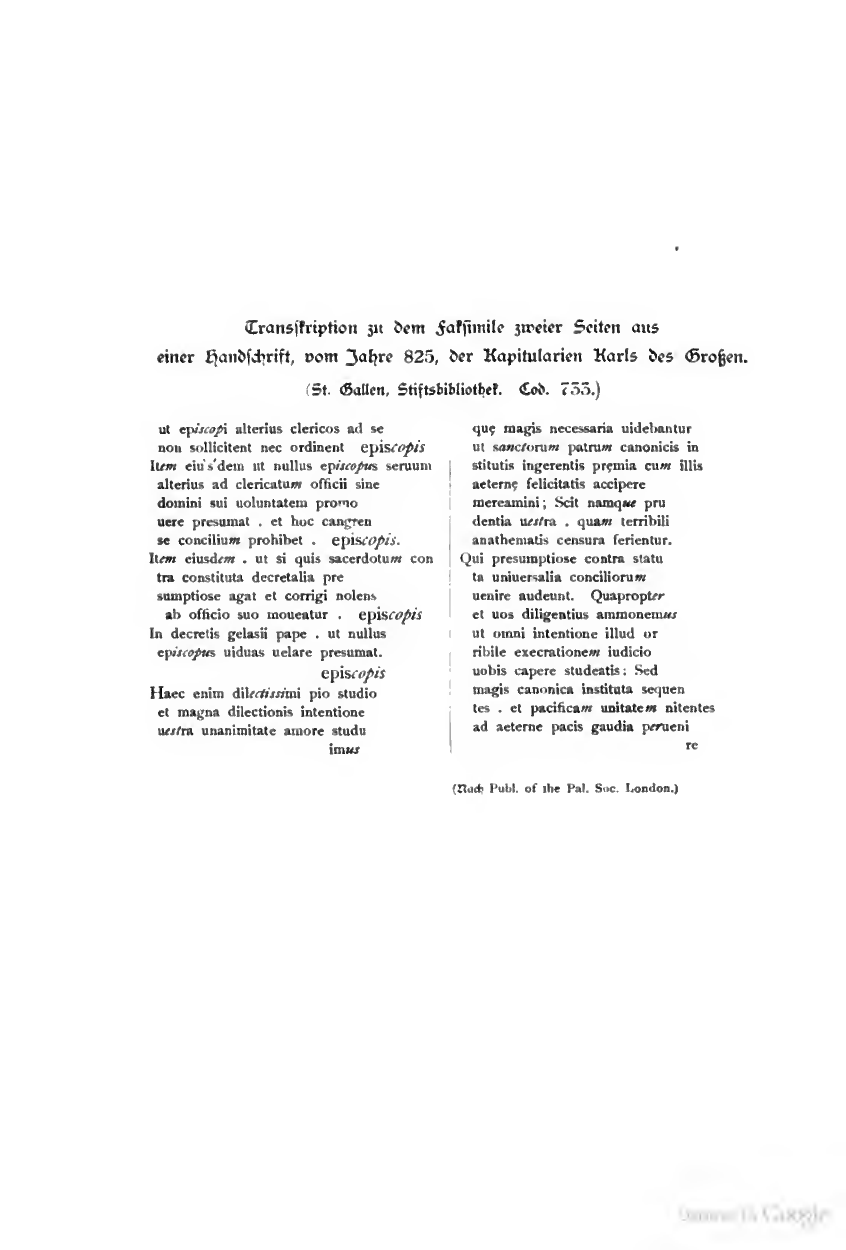 Transskription zu dem Faksimile zweier Seiten aus
einer Handschrift, vom Jahre 825, der Kapitularien Karls des Großen.
(St. Gallen, Stiftsbibliothek. Cod. 733.)
ut episcopi alterius clericos ad se
non sollicitent nec ordinent episcopis
Item eiu`s´dem ut nullus episcopus seruum
alterius ad clericatum officii sine
domini sui uoluntatem promo
uere presumat . et hoc cangren
se concilium prohibet . episcopis.
Item eiusdem . ut si quis sacerdotum con
tra constituta decretalia pre
sumptiose agat et corrigi nolens
ab officio suo moueatur . episcopis
In decretis gelasii pape . ut nullus
episcopus uiduas uelare presumat.
episcopis
Haec enim dilectissimi pio studio
et magna dilectionis intentione
uestra unanimitate amore studu
imus
quę magis necessaria uidebantur
ut sanctorum patrum canonicis in
stitutis ingerentis pręmia cum illis
aeternę felicitatis accipere
mereamini; Scit namque pru
dentia uestra . quam terribili
anathematis censura ferientur.
Qui presumptiose contra statu
ta uniuersalia conciliorum
uenire audeunt. Quapropter
et uos diligentius ammonemus
ut omni intentione illud or
ribile execrationem iudicio
uobis capere studeatis; Sed
magis canonica instituta sequen
tes . et pacificam unitatem nitentes
ad aeterne pacis gaudia perueni
re
(Nach Publ. of the Pal. Soc. London.)
Google